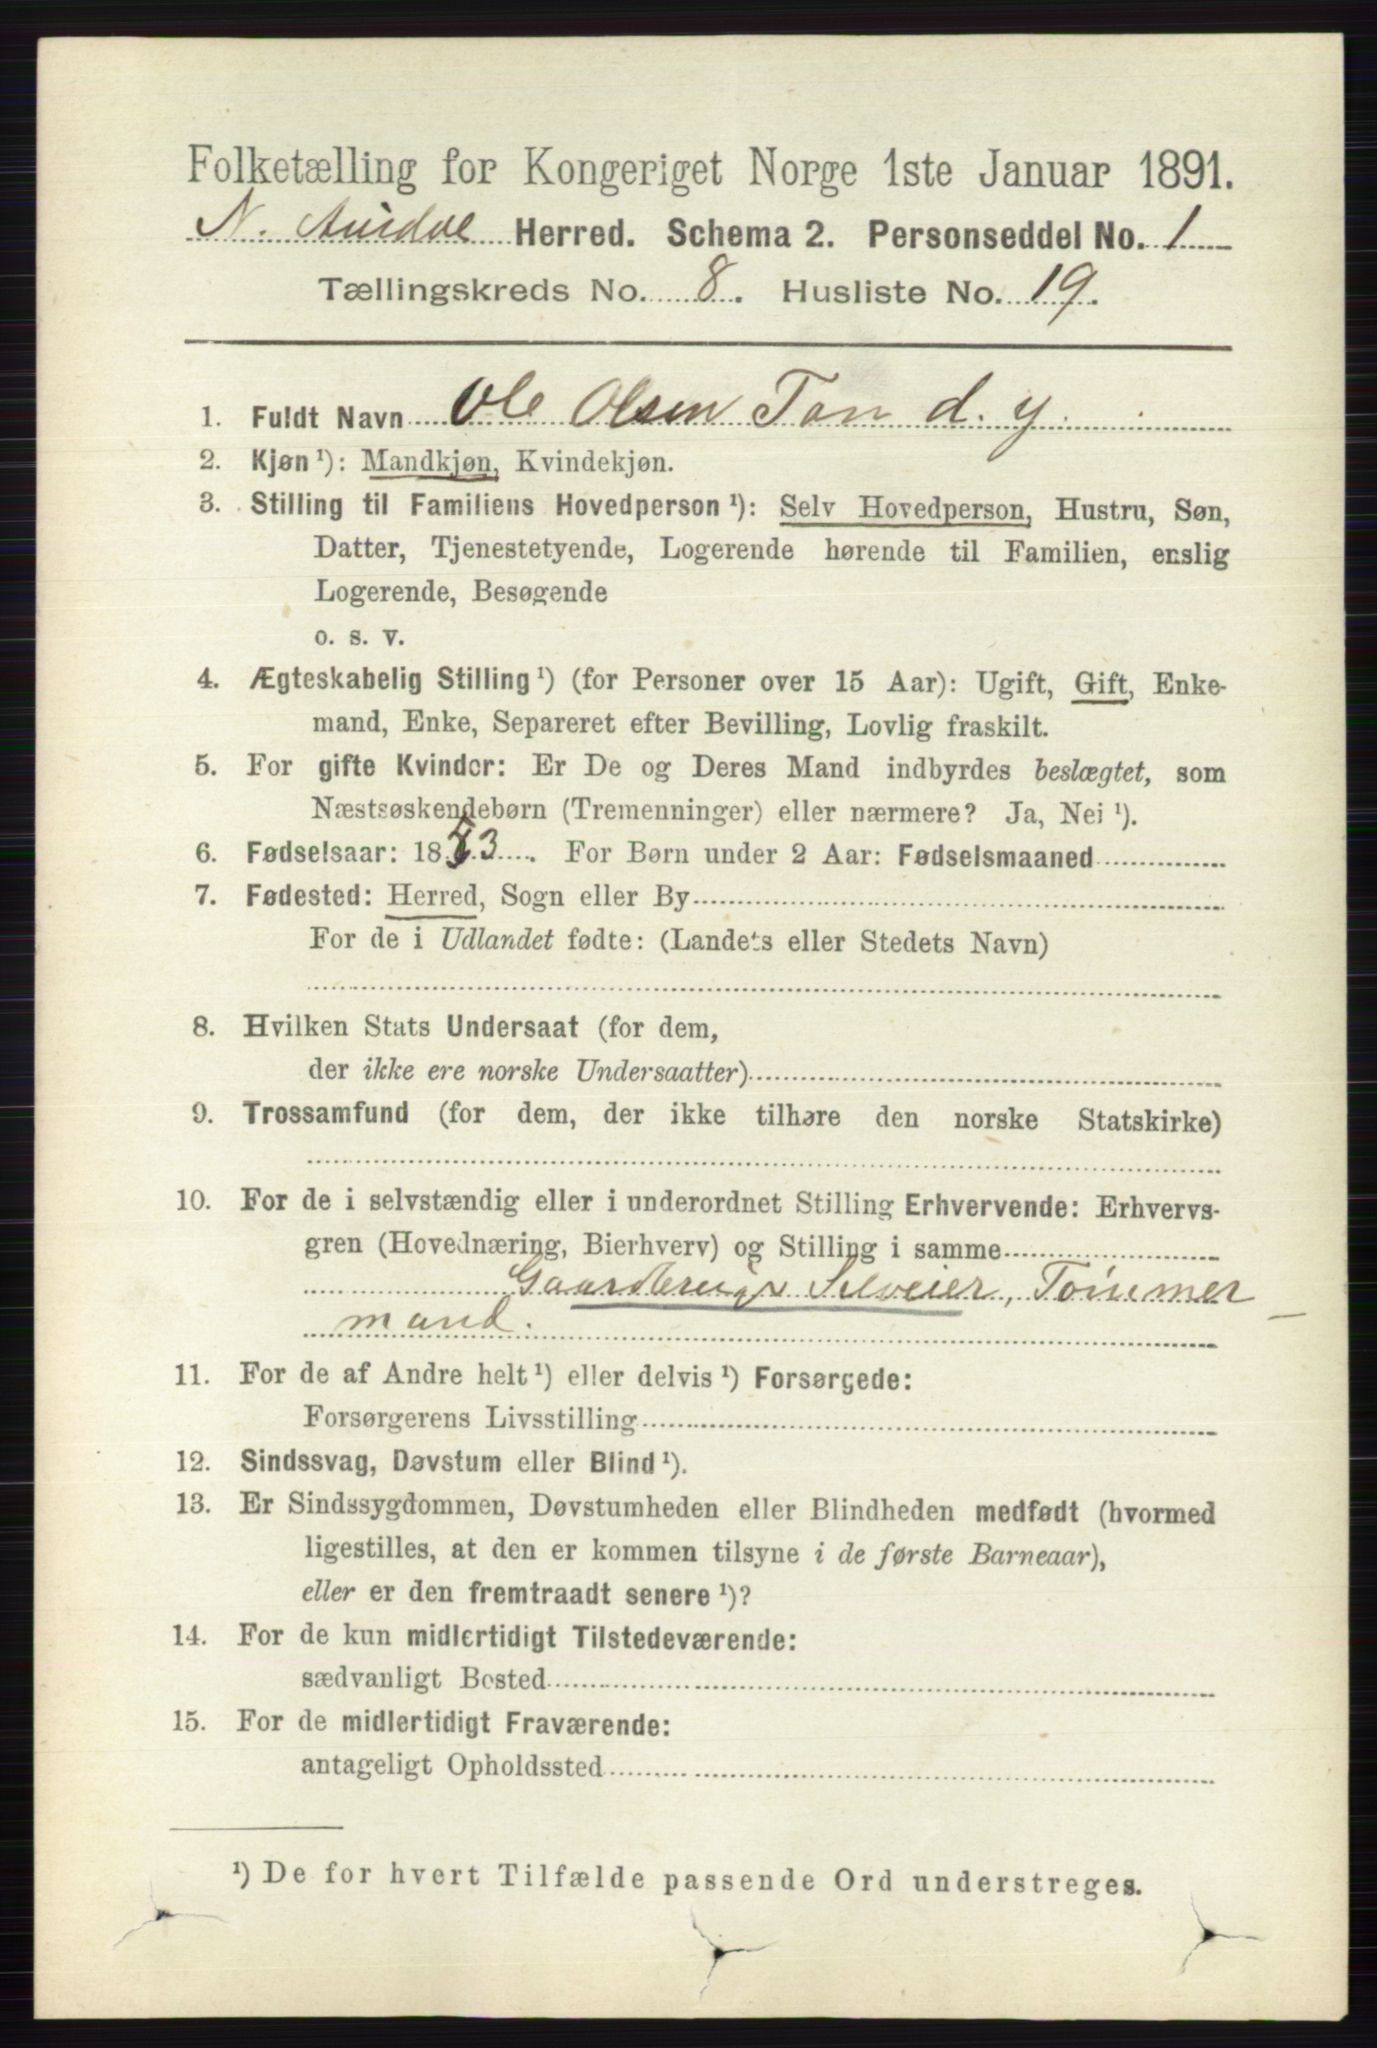 Folketælling for Kongeriget Norge 1ste Januar 1891.
N. Aurdal Herred. Schema 2. Personseddel No. 1
Tællingskreds No. 8. Husliste No. 19.
1. Fuldt Navn Ole Olsen Ton d. y.
2. Kjøn ¹): Mandkjøn, Kvindekjøn.
3. Stilling til Familiens Hovedperson ¹): Selv Hovedperson, Hustru, Søn,
Datter, Tjenestetyende, Logerende hørende til Familien, enslig
Logerende, Besøgende
o. s. v.
4. Ægteskabelig Stilling ¹) (for Personer over 15 Aar): Ugift, Gift, Enke-
mand, Enke, Separeret efter Bevilling, Lovlig fraskilt.
5. For gifte Kvinder: Er De og Deres Mand indbyrdes beslægtet, som
Næstsøskendebørn (Tremenninger) eller nærmere? Ja, Nei ¹).
6. Fødselsaar: 1853. For Børn under 2 Aar: Fødselsmaaned
7. Fødested: Herred, Sogn eller By
For de i Udlandet fødte: (Landets eller Stedets Navn)
8. Hvilken Stats Undersaat (for dem,
der ikke ere norske Undersaatter)
9. Trossamfund (for dem, der ikke tilhøre den norske Statskirke)
10. For de i selvstændig eller i underordnet Stilling Erhvervende: Erhvervs-
gren (Hovednæring, Bierhverv) og Stilling i samme
Gaardbrugs Selveier, Tømmer
mand.
11. For de af Andre helt ¹) eller delvis ¹) Forsørgede:
Forsørgerens Livsstilling
12. Sindssvag, Døvstum eller Blind ¹).
13. Er Sindssygdommen, Døvstumheden eller Blindheden medfødt (hvormed
ligestilles, at den er kommen tilsyne i de første Barneaar),
eller er den fremtraadt senere ¹)?
14. For de kun midlertidigt Tilstedeværende:
sædvanligt Bosted
15. For de midlertidigt Fraværende:
antageligt Opholdssted
¹) De for hvert Tilfælde passende Ord understreges.